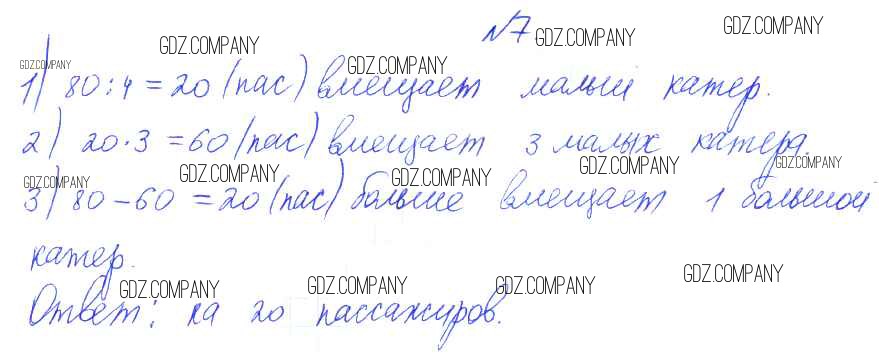 №7.
1) 80:4=20 (пас) вмещает малый катер.
2) 20·3=60 (пас) вмещает 3 малых катера.
3) 80-60=20 (пас) больше вмещает 1 большой
катер.
Ответ: на 20 пассажиров.
GDZ.COMPANY GDZ.COMPANY GDZ.COMPANY
GDZ.COMPANY GDZ.COMPANY
GDZ.COMPANY GDZ.COMPANY GDZ.COMPANY GDZ.COMPANY GDZ.COMPANY
GDZ.COMPANY GDZ.COMPANY GDZ.COMPANY GDZ.COMPANY